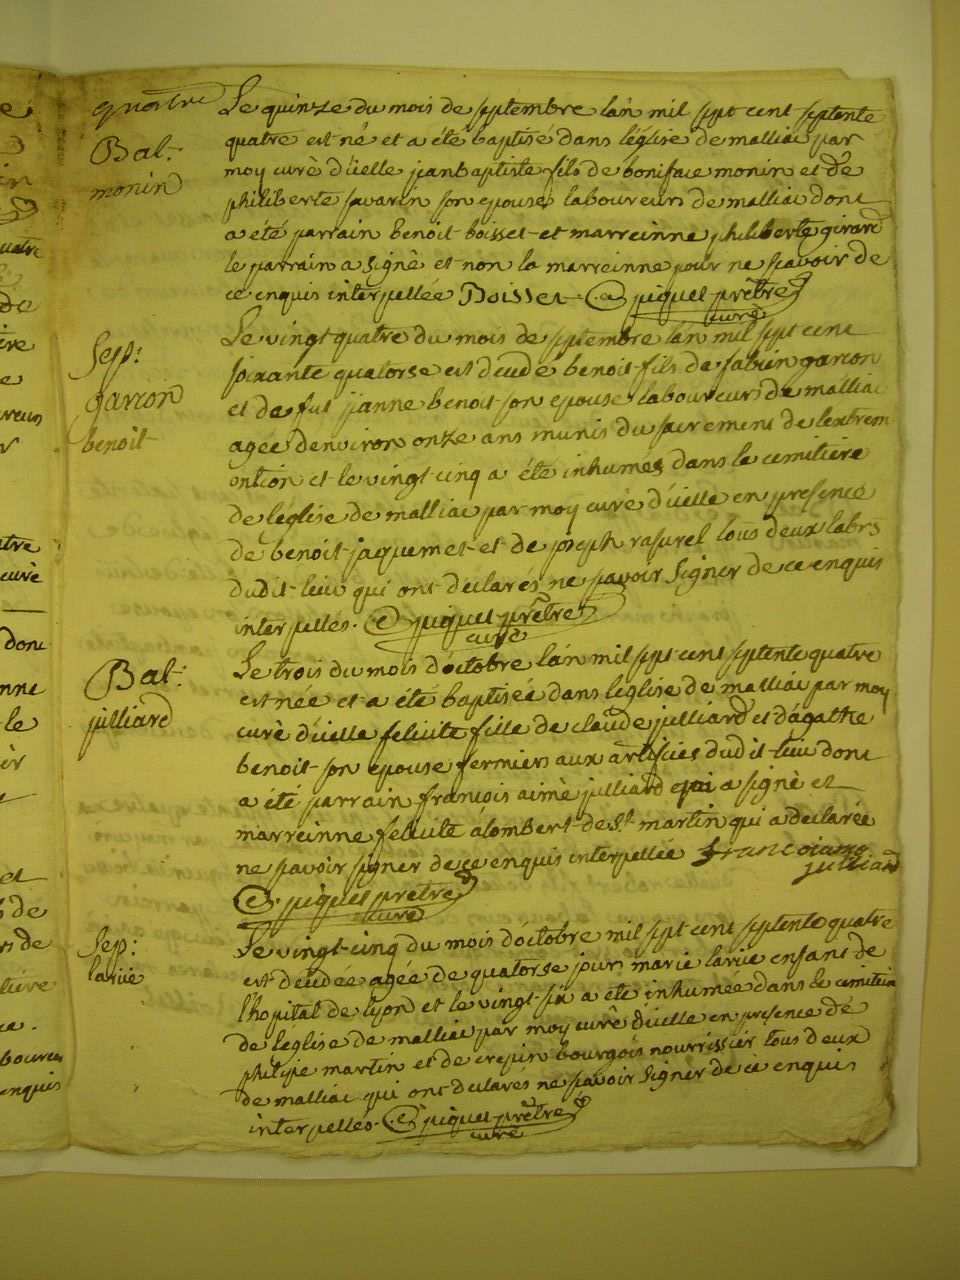 quatre
Bat.
monin
Le quinze du mois de septembre l'an mil sept cent septente
quatre est né et a été baptisé dans l'église de malliac par
moy curé d'icelle jeanbaptiste fils de boniface monin et de
philiberte savarin son epouse laboureurs de malliac dont
a été parrain benoit boisset et marreinne philiberte girard
le parrain a signé et non la marreinne pour ne sçavoir de
ce enquis interpellée Boisset piquet prêtre
curé
Sep:
garcon
benoit
Le vingt quatre du mois de septembre l'an mil sept cent
soixante quatorse est décédé benoit fils de fabien garcon
et de fut janne benoit son epouse laboureurs de malliac
agée d'environ onze ans munis du sacrement de l'extrem
ontion et le vingt cinq a été inhumés dans le cemitiere
de l'eglise de malliac par moy curé d'icelle en presence
de benoit jaquemet et de joseph rasurel tous deux labrs
dudit lieu qui ont declarés ne savoir signer de ce enquis
interpellés. piquet prêtre
curé
Bat:
julliard
Le trois du mois d'octobre l'an mil sept cent septente quatre
est née et a été baptisée dans l'eglise de malliac par moy
curé d'icelle felicite fille de claude julliard et d'agathe
benoit son epouse fermiers aux artifices dudit lieu dont
a été parrain francois aimé julliard qui a signé et
marreinne felicite alombert de St martin qui a declarée
ne savoir signer de ce enquis interpellée
julliard
piquet prêtre
curé
Sep:
larive
Le vingt-cinq du mois d'octobre mil sept cent septente quatre
est décédée agée de quatorse jours marie larive enfant de
l'hopital de lyon et le vingt-six a été inhumée dans le cemitiere
de l'eglise de malliac par moy curé d'icelle en presence de
philipe martin et de crepin bourgois nourrissier tous deux
de malliac qui ont declarés ne savoir signer de ce enquis
interpellés. piquet prêtre
curé